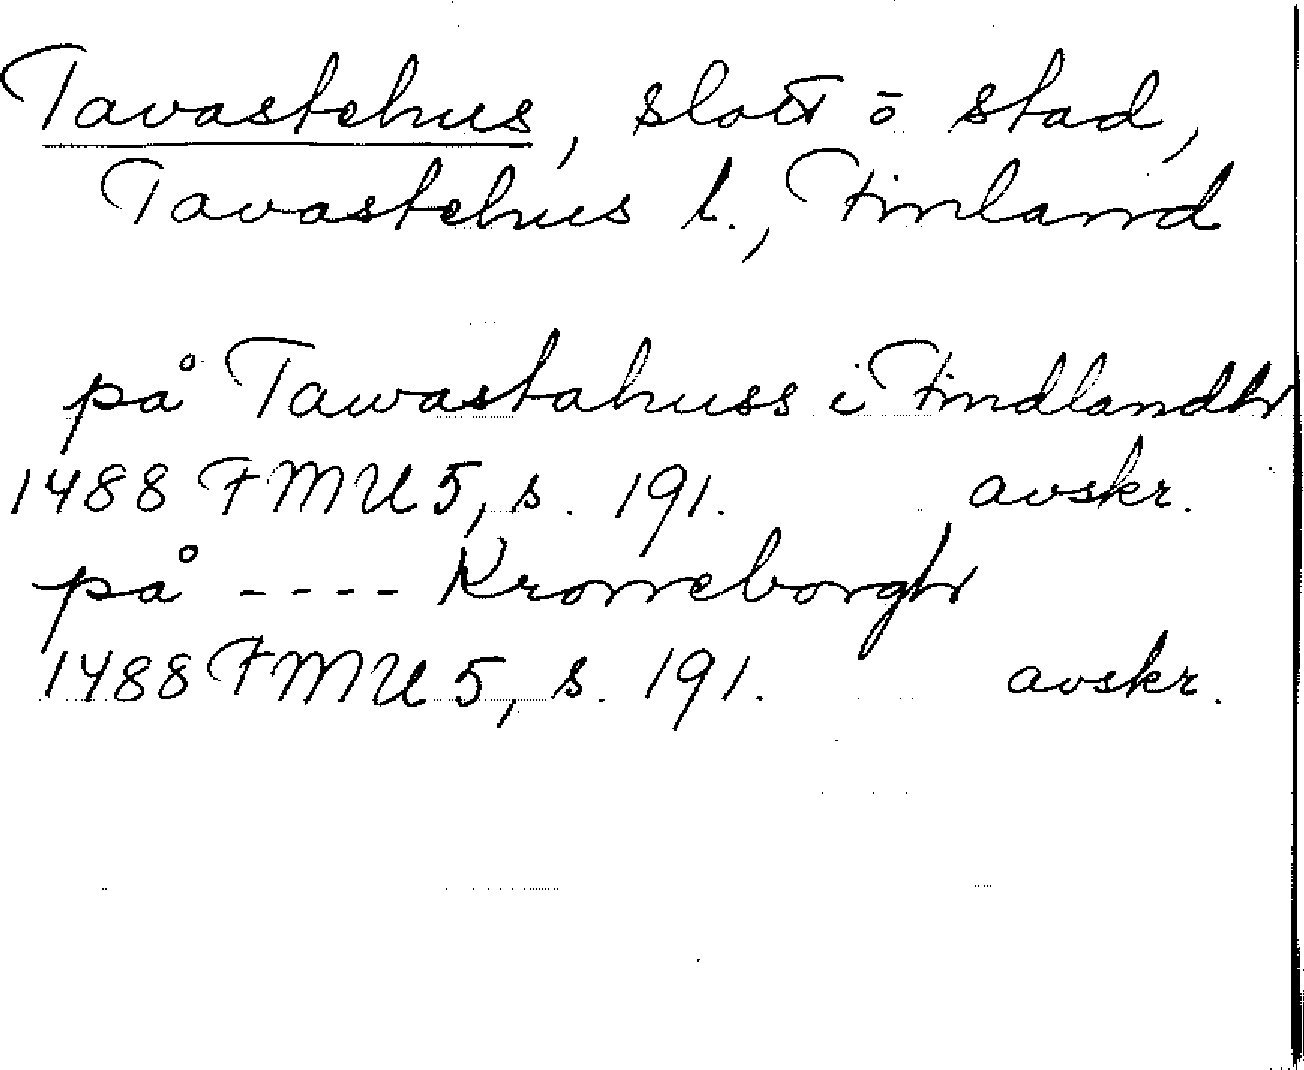 Tavastehus, slott o stad,
Tavastehus l., Finland
på Tawastahuss i Findlandh
1488 FMU 5, s. 191. avskr.
på ---- Kroneborgh
1488 FMU 5, s. 191. avskr.